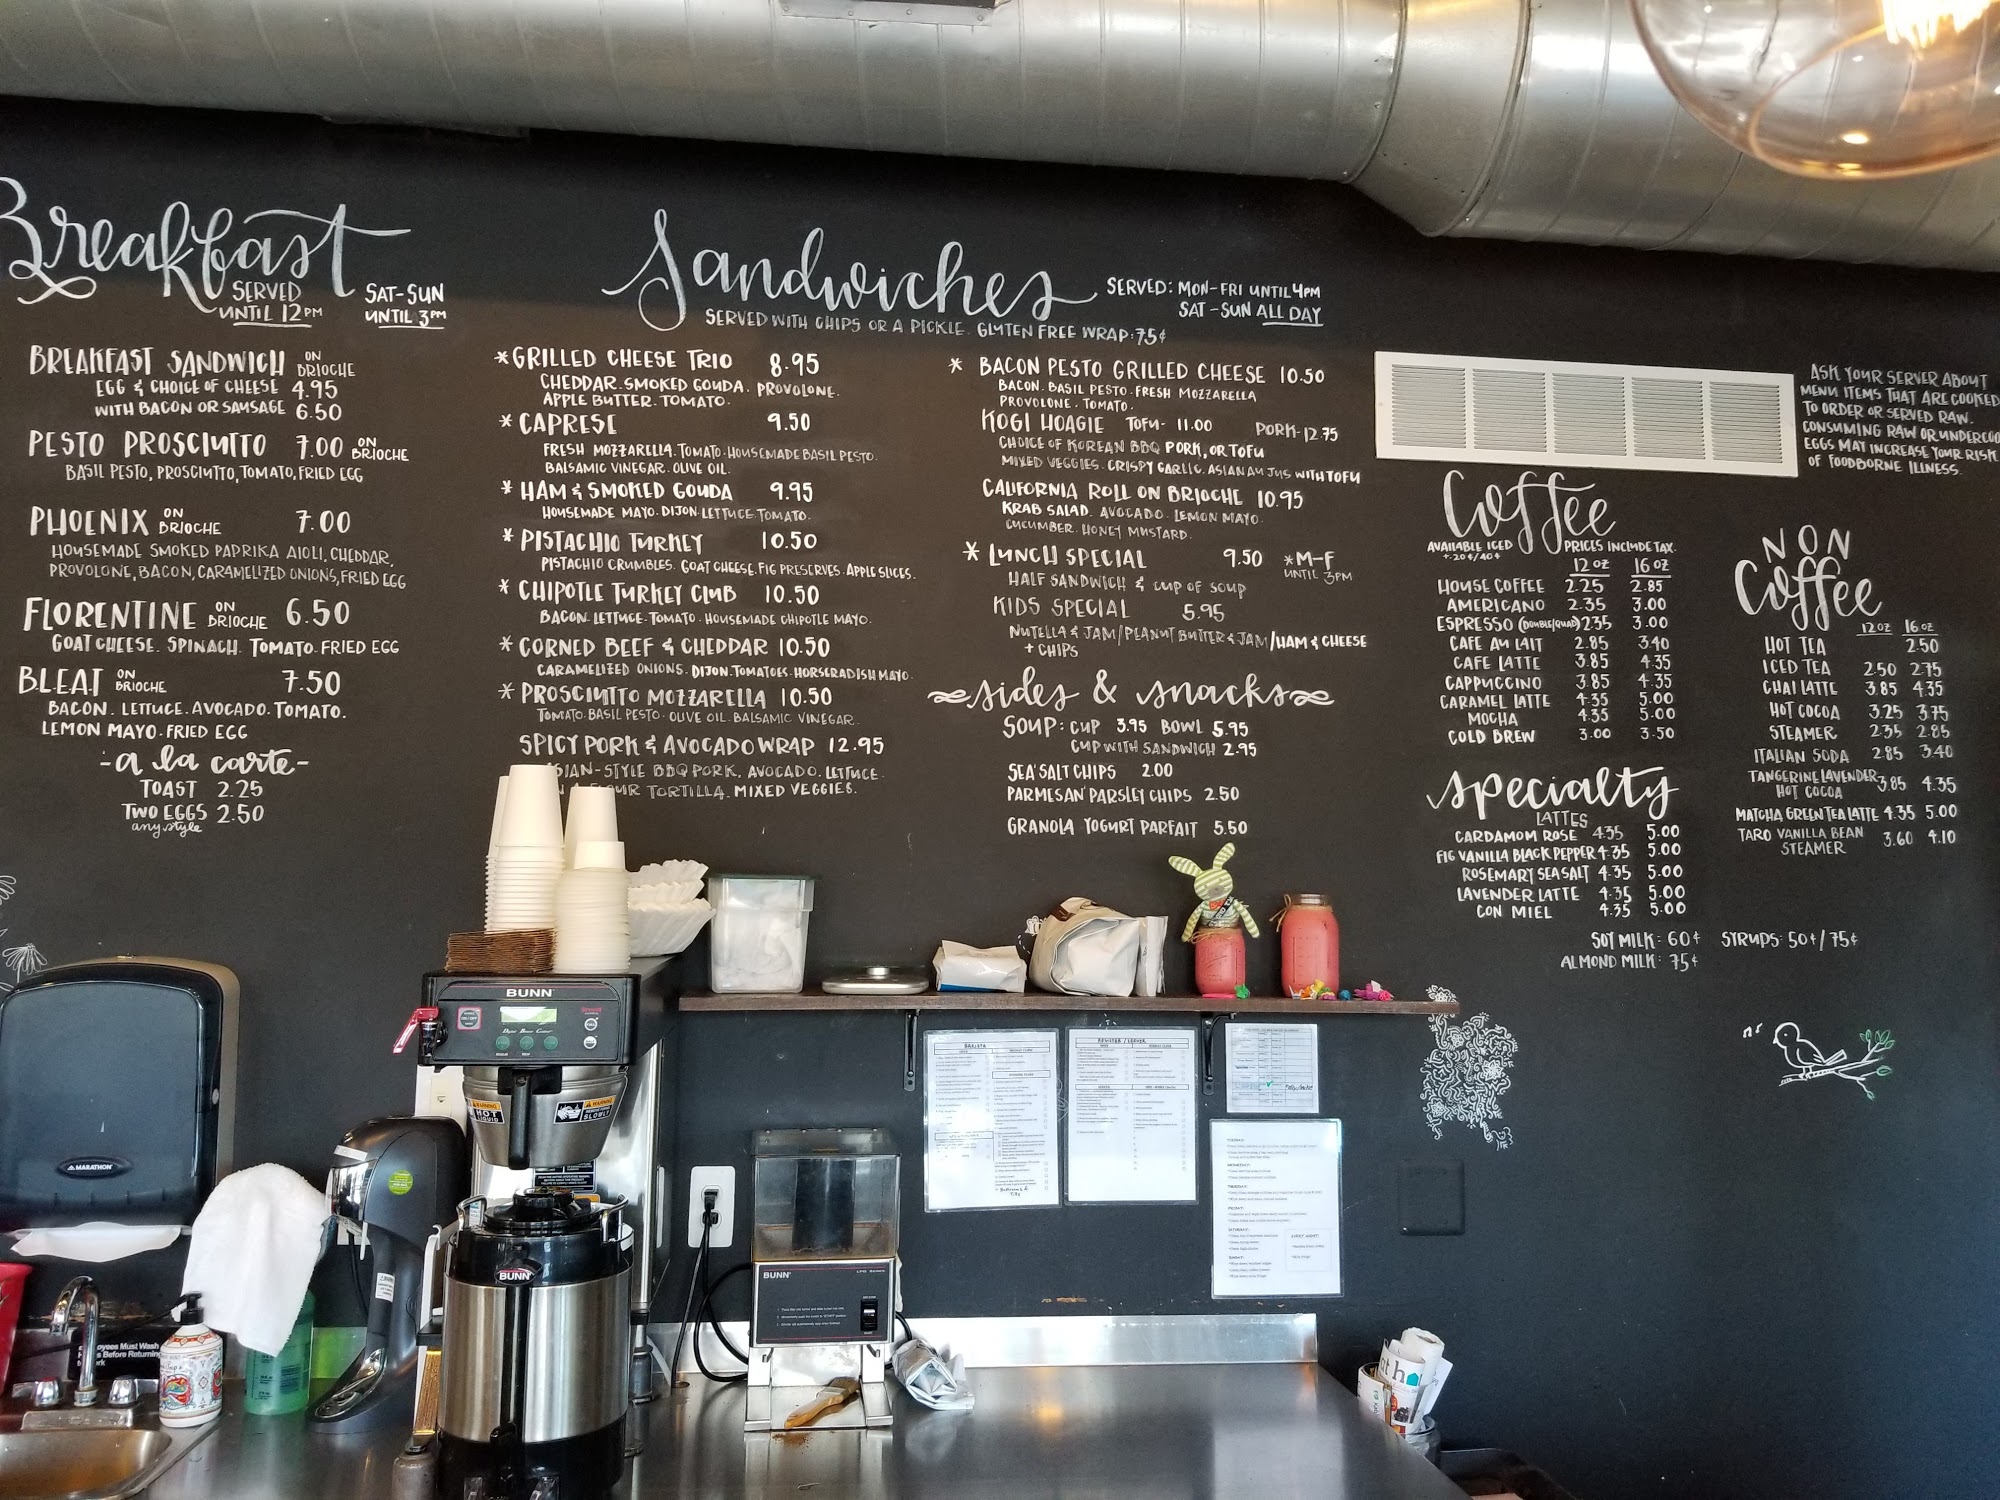 Breakfast
SERVED
UNTIL 12PM
SAT-SUN
UNTIL 3PM
BREAKFAST SANDWICH ON BRIOCHE
EGG & CHOICE OF CHEESE 4.95
WITH BACON OR SAUSAGE 6.50
PESTO PROSCIUTTO 7.00 ON BRIOCHE
BASIL PESTO, PROSCIUTTO, TOMATO, FRIED EGG
PHOENIX ON BRIOCHE 7.00
HOUSEMADE SMOKED PAPRIKA AIOLI, CHEDDAR,
PROVOLONE, BACON, CARAMELIZED ONIONS, FRIED EGG
FLORENTINE ON BRIOCHE 6.50
GOAT CHEESE. SPINACH. TOMATO. FRIED EGG
B.L.E.A.T ON BRIOCHE 7.50
BACON. LETTUCE. AVOCADO. TOMATO.
LEMON MAYO. FRIED EGG
-a la carte-
TOAST 2.25
TWO EGGS 2.50
any style
Sandwiches
SERVED: MON-FRI UNTIL 4PM
SAT-SUN ALL DAY
SERVED WITH CHIPS OR A PICKLE. GLUTEN FREE WRAP: 75¢
*GRILLED CHEESE TRIO 8.95
CHEDDAR. SMOKED GOUDA. PROVOLONE.
APPLE BUTTER. TOMATO.
*CAPRESE 9.50
FRESH MOZZARELLA. TOMATO. HOUSEMADE BASIL PESTO.
BALSAMIC VINEGAR. OLIVE OIL.
*HAM & SMOKED GOUDA 9.95
HOUSEMADE MAYO. DIJON. LETTUCE. TOMATO.
*PISTACHIO TURKEY 10.50
PISTACHIO CRUMBLES. GOAT CHEESE. FIG PRESERVES. APPLE SLICES.
*CHIPOTLE TURKEY CLUB 10.50
BACON. LETTUCE. TOMATO. HOUSEMADE CHIPOTLE MAYO.
*CORNED BEEF & CHEDDAR 10.50
CARAMELIZED ONIONS. DIJON. TOMATOES. HORSERADISH MAYO.
*PROSCIUTTO MOZZARELLA 10.50
TOMATO. BASIL PESTO. OLIVE OIL. BALSAMIC VINEGAR.
SPICY PORK & AVOCADO WRAP 12.95
ASIAN-STYLE BBQ PORK. AVOCADO. LETTUCE.
FLOUR TORTILLA. MIXED VEGGIES.
* BACON PESTO GRILLED CHEESE 10.50
BACON. BASIL PESTO. FRESH MOZZARELLA
PROVOLONE. TOMATO.
KOGI HOAGIE TOFU- 11.00 PORK-12.75
CHOICE OF KOREAN BBQ PORK, OR TOFU
MIXED VEGGIES. CRISPY GARLIC. ASIAN AU JUS WITH TOFU
CALIFORNIA ROLL ON BRIOCHE 10.95
KRAB SALAD. AVOCADO. LEMON MAYO.
CUCUMBER. HONEY MUSTARD.
* LUNCH SPECIAL 9.50 *M-F
UNTIL 3PM
HALF SANDWICH & CUP OF SOUP
KIDS SPECIAL 5.95
NUTELLA & JAM/PEANUT BUTTER & JAM/HAM & CHEESE
+ CHIPS
sides & snacks
SOUP: CUP 3.95 BOWL 5.95
CUP WITH SANDWICH 2.95
SEA SALT CHIPS 2.00
PARMESAN PARSLEY CHIPS 2.50
GRANOLA YOGURT PARFAIT 5.50
ASK YOUR SERVER ABOUT
MENU ITEMS THAT ARE COOKED
TO ORDER OR SERVED RAW.
CONSUMING RAW OR UNDERCOO
EGGS MAY INCREASE YOUR RISK
OF FOODBORNE ILLNESS.
Coffee
AVAILABLE ICED PRICES INCLUDE TAX.
+.20¢/40¢
12 OZ 16 OZ
HOUSE COFFEE 2.25 2.85
AMERICANO 2.35 3.00
ESPRESSO (DOUBLE/QUAD) 2.35 3.00
CAFE AU LAIT 2.85 3.40
CAFE LATTE 3.85 4.35
CAPPUCCINO 3.85 4.35
CARAMEL LATTE 4.35 5.00
MOCHA 4.35 5.00
COLD BREW 3.00 3.50
specialty
LATTES
CARDAMOM ROSE 4.35 5.00
FIG VANILLA BLACK PEPPER 4.35 5.00
ROSEMARY SEA SALT 4.35 5.00
LAVENDER LATTE 4.35 5.00
CON MIEL 4.35 5.00
SOY MILK: 60¢ SYRUPS: 50¢/75¢
ALMOND MILK: 75¢
NON
Coffee
12 OZ 16 OZ
HOT TEA 2.50
ICED TEA 2.50 2.75
CHAI LATTE 3.85 4.35
HOT COCOA 3.25 3.75
STEAMER 2.35 2.85
ITALIAN SODA 2.85 3.40
TANGERINE LAVENDER
HOT COCOA 3.85 4.35
MATCHA GREEN TEA LATTE 4.35 5.00
TARO VANILLA BEAN
STEAMER 3.60 4.10
BUNN
WARNING
HOT
LIQUID
WARNING
SLOWLY
BUNN
BUNN
MARATHON
BARISTA
REGISTER / SERVER
oyees Must Wash
s Before Returning